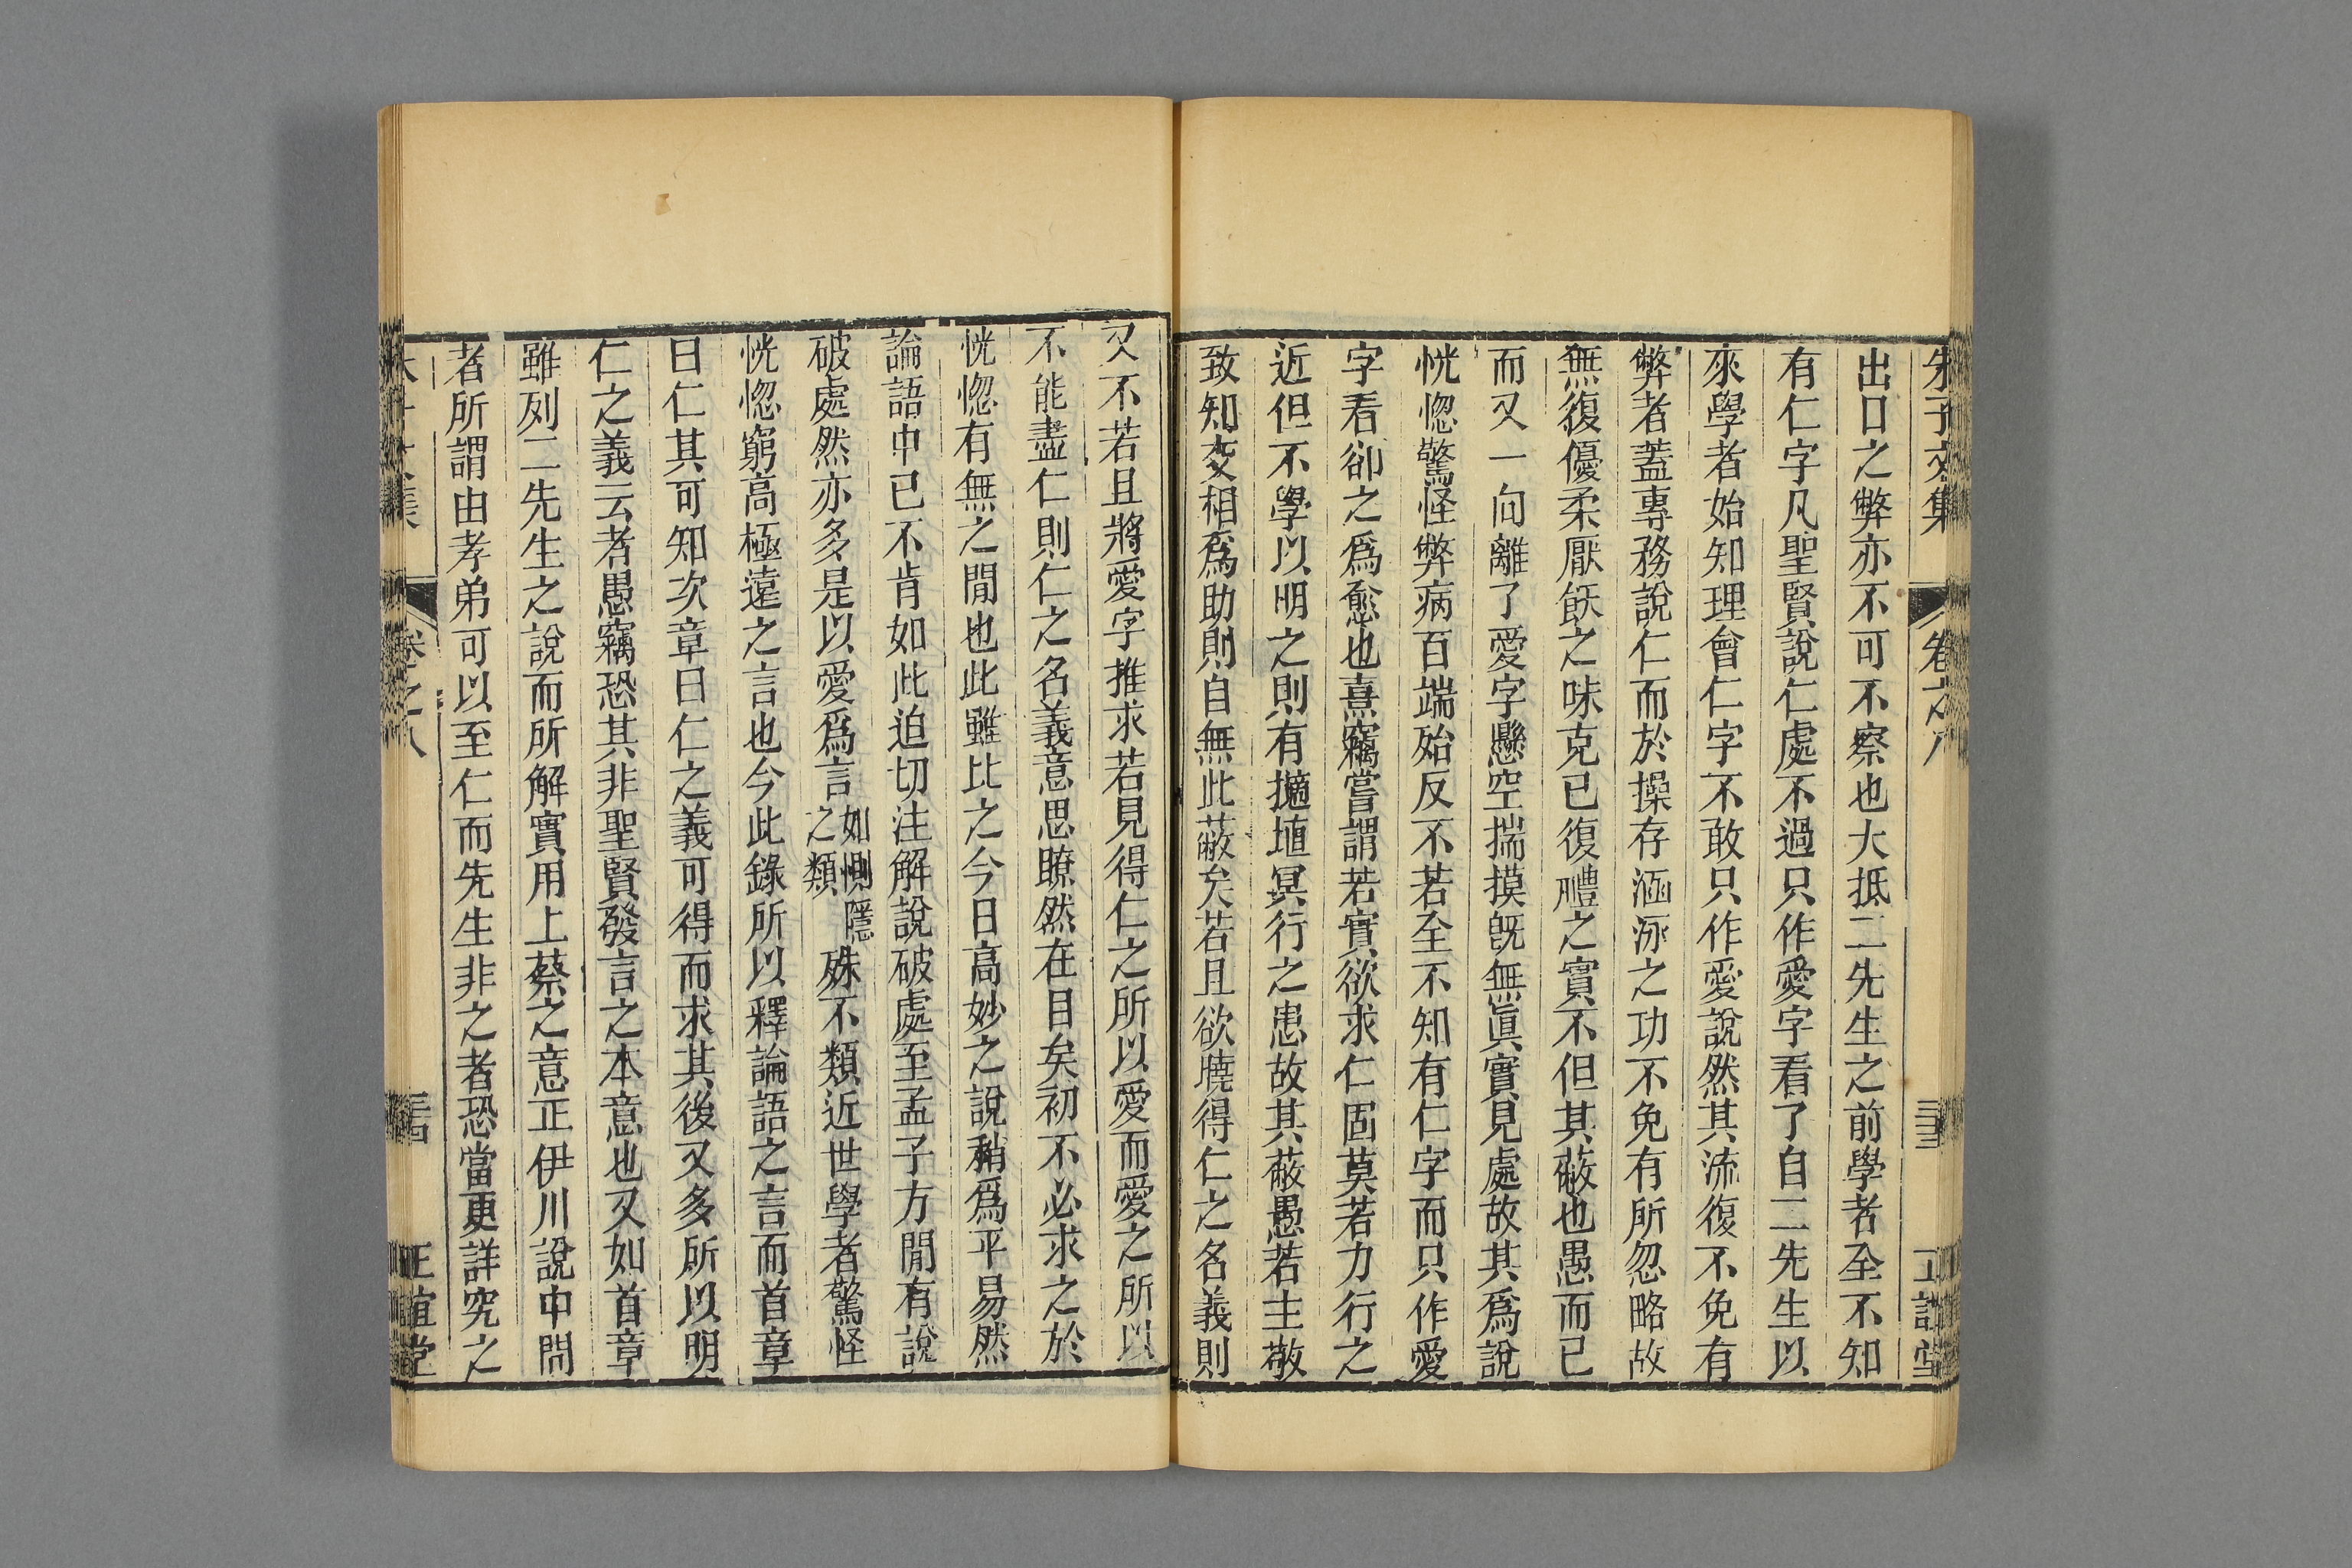 朱子文集 卷之八 三十三 正誼堂
出口之弊亦不可不察也大抵二先生之前學者全不知
有仁字凡聖賢說仁處不過只作愛字看了自二先生以
來學者始知理會仁字不敢只作愛說然其流復不免有
弊者蓋專務說仁而於操存涵泳之功不免有所忽略故
無復優柔厭飫之味克已復禮之實不但其蔽也愚而已
而又一向離了愛字懸空揣摸旣無眞實見處故其爲說
恍惚驚怪弊病百端殆反不若全不知有仁字而只作愛
字看卻之爲愈也熹竊嘗謂若實欲求仁固莫若力行之
近但不學以明之則有擿埴冥行之患故其蔽愚若主敬
致知交相爲助則自無此蔽矣若且欲曉得仁之名義則
又不若且將愛字推求若見得仁之所以愛而愛之所以
不能盡仁則仁之名義意思瞭然在目矣初不必求之於
恍惚有無之閒也此雖比之今日高妙之說稍爲平易然
論語中已不肯如此迫切注解說破處至孟子方閒有說
破處然亦多是以愛爲言如惻隱之類殊不類近世學者驚怪
恍惚窮高極遠之言也今此錄所以釋論語之言而首章
曰仁其可知次章曰仁之義可得而求其後又多所以明
仁之義云者愚竊恐其非聖賢發言之本意也又如首章
雖列二先生之說而所解實用上蔡之意正伊川說中問
者所謂由孝弟可以至仁而先生非之者恐當更詳究之
卷之八 三十四 正誼堂